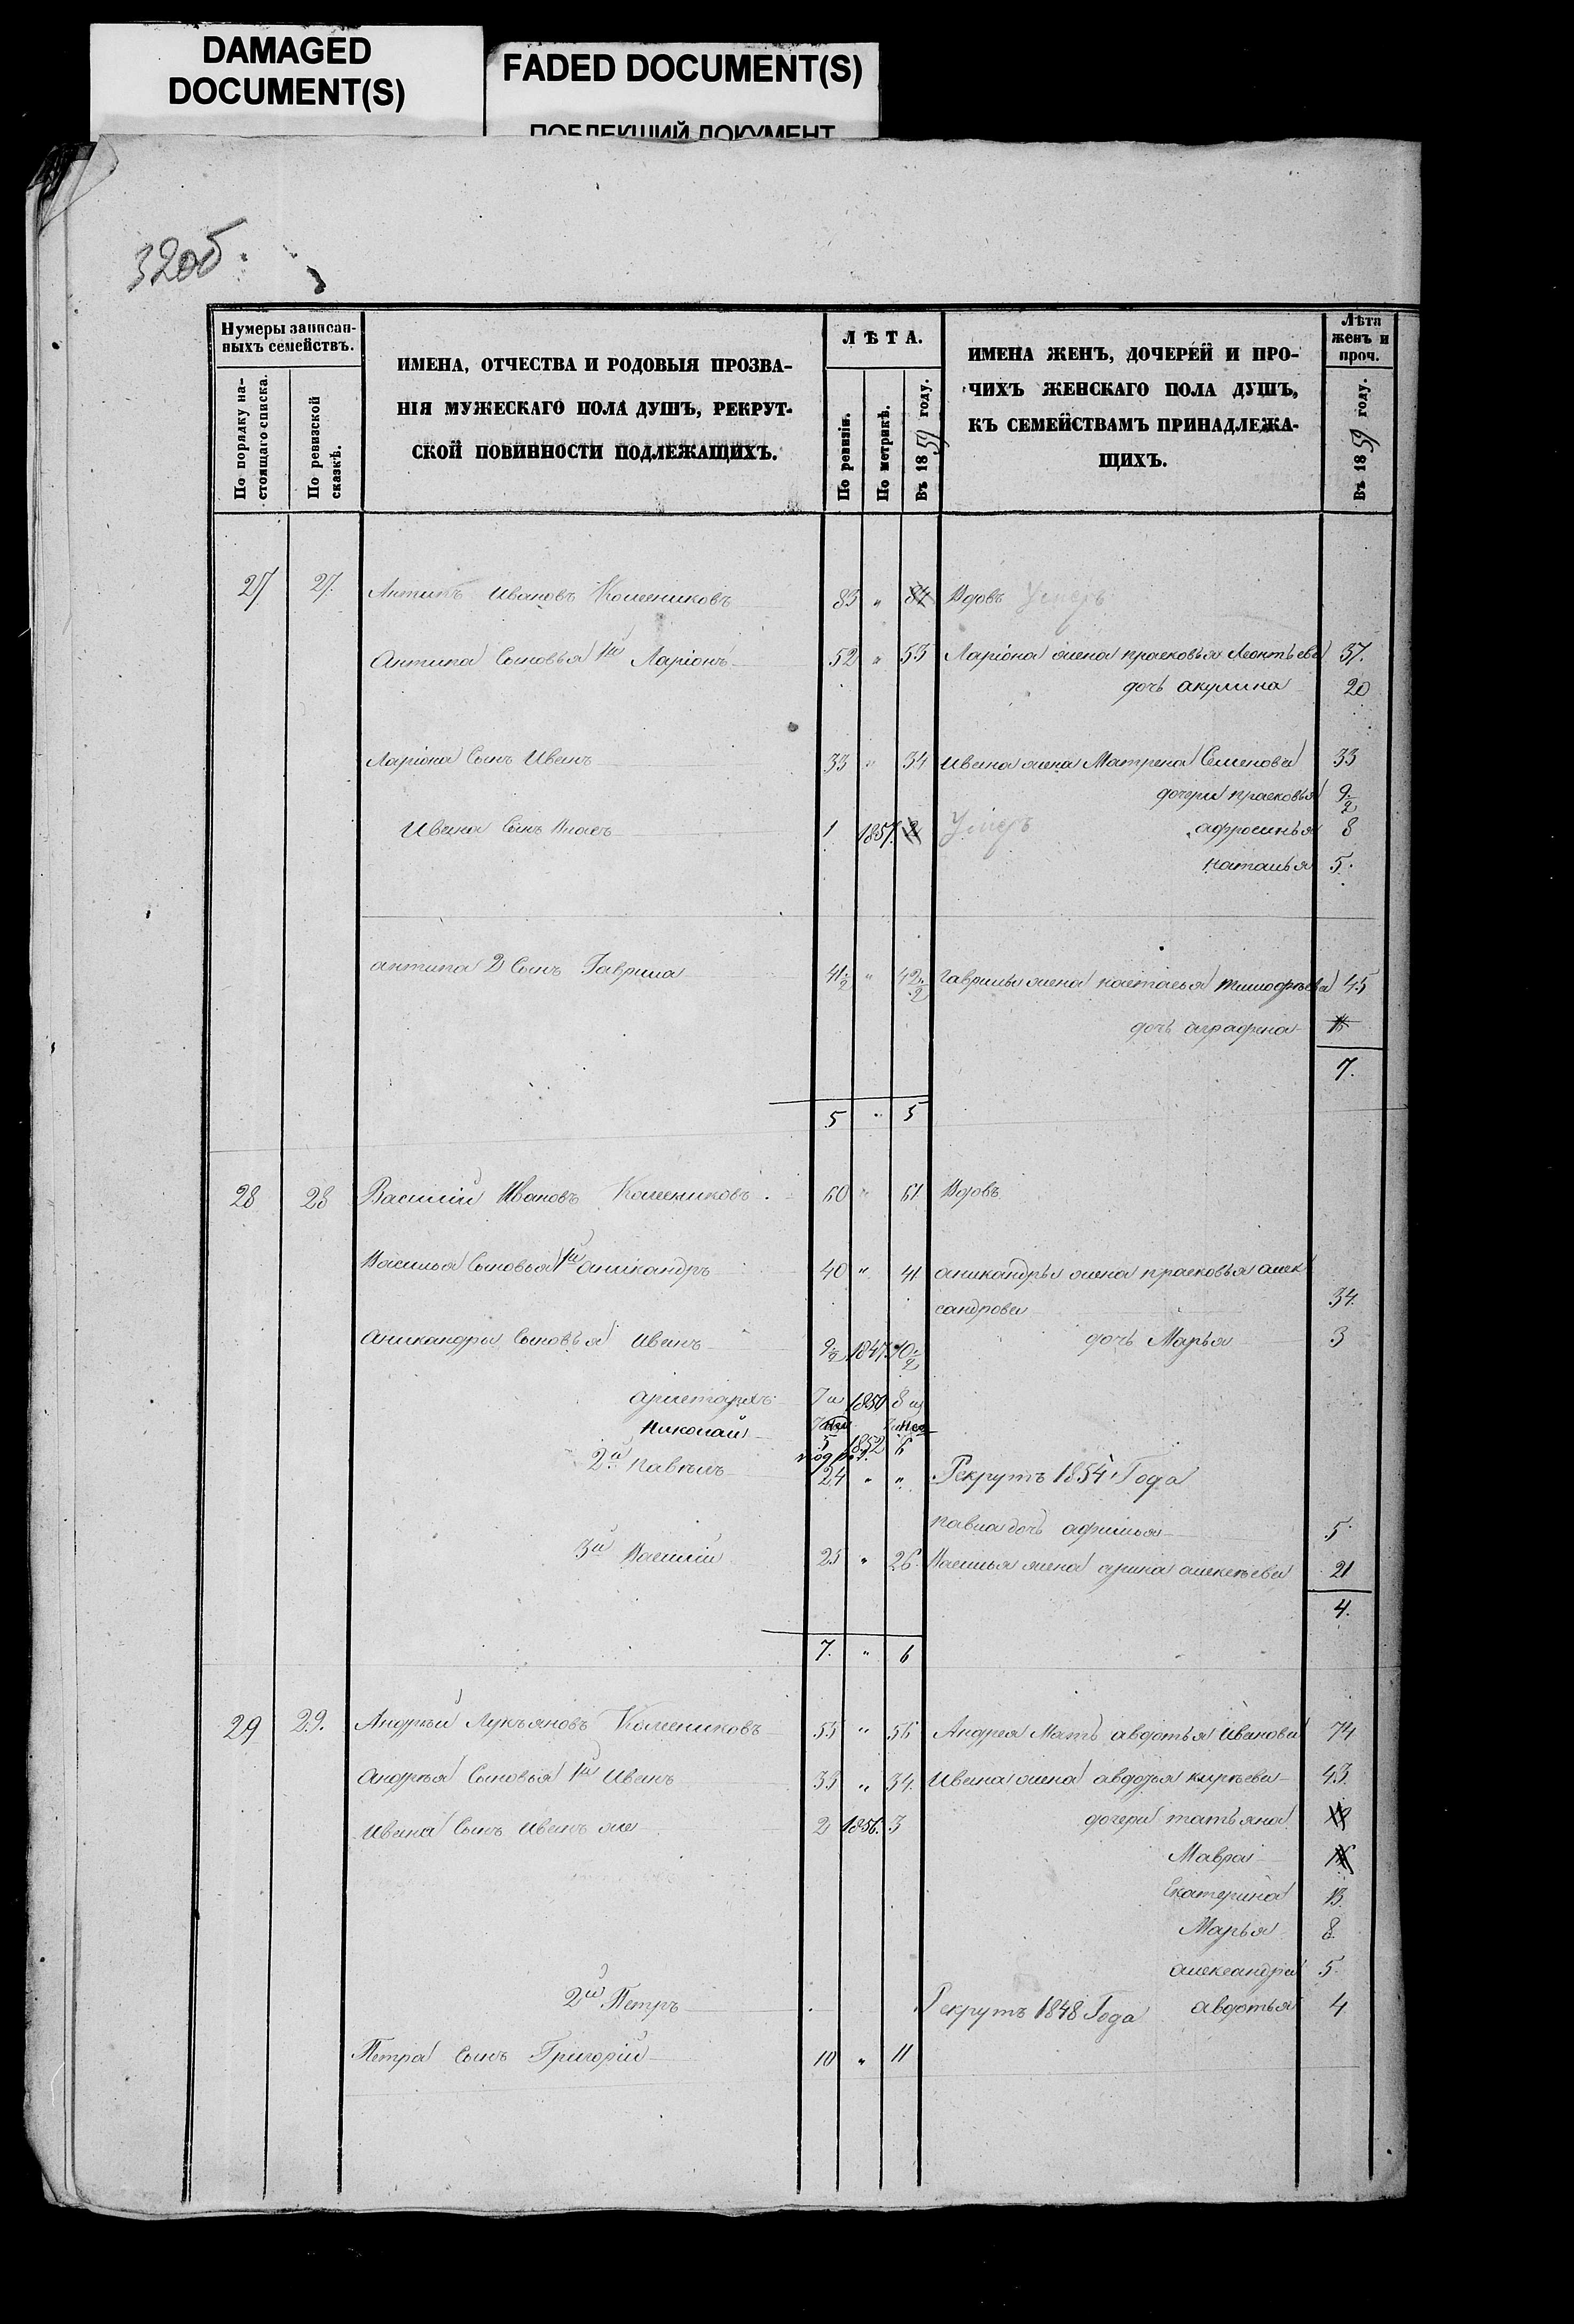 DAMAGED
DOCUMENT(S)
FADED DOCUMENT(S)
ПОБЛЕКШИЙ ДОКУМЕНТ
32об.
Нумеры записан-
ныхъ семействъ.
По порядку на-
стоящаго списка.
По ревизской
сказкѣ.
ИМЕНА, ОТЧЕСТВА И РОДОВЫЯ ПРОЗВА-
НІЯ МУЖЕСКАГО ПОЛА ДУШЪ, РЕКРУТ-
СКОЙ ПОВИННОСТИ ПОДЛЕЖАЩИХЪ.
ЛѢТА.
По ревизіи.
По метрикѣ.
Въ 1859 году.
ИМЕНА ЖЕНЪ, ДОЧЕРЕЙ И ПРО-
ЧИХЪ ЖЕНСКАГО ПОЛА ДУШЪ,
КЪ СЕМЕЙСТВАМЪ ПРИНАДЛЕЖА-
ЩИХЪ.
Лѣта
женъ и
проч.
Въ 1859 году.
27 27. Антипъ Ивановъ 83 " 84 Вдовъ Умеръ
Антипа Сыновья 1й Ларіонъ 52 " 53 Ларіона жена прасковья Леонтьева 37.
дочь акулина 20
Ларіона Сынъ Иванъ 33 " 34 Ивана жена Матрена Семенова 33
дочери прасковья 9½
Ивана Сынъ Власъ 1 1857. 2 Умеръ афросинья 8
наталья 5.
антипа 2 Сынъ Гаврила 41½ " 42½ Гаврилы жена настасья тимофѣева 45
дочь аграфена
7.
5 " 5
28 28 Василій Ивановъ 60 " 61 Вдовъ
Василья Сыновья 1й аникандръ 40 " 41 аникандры жена прасковья алек
сандрова 34.
аникандры Сыновья Иванъ 9½ 1847. 10½ дочь Марья 3
аристархъ 7 1850 8
николай 5 1852 6
2й павелъ 24 " " Рекрутъ 1854 Года
павла дочь афимья 5.
3й Василій 25 " 26. Василья жена арина алексѣева 21
4.
7. " 6
29 29. Андрѣй Лукьяновъ 55 " 56 Андрея Мать авдотья Иванова 74
андрѣя Сыновья 1й Иванъ 33 " 34. Ивана жена авдотья 43.
Ивана Сынъ Иванъ же 2 1856. 3 дочери татьяна
Мавра
Екатерина 13.
Марья 8.
александра 5.
2й Петръ Рекрутъ 1848 Года авдотья 4
Петра Сынъ Григорій 10 " 11